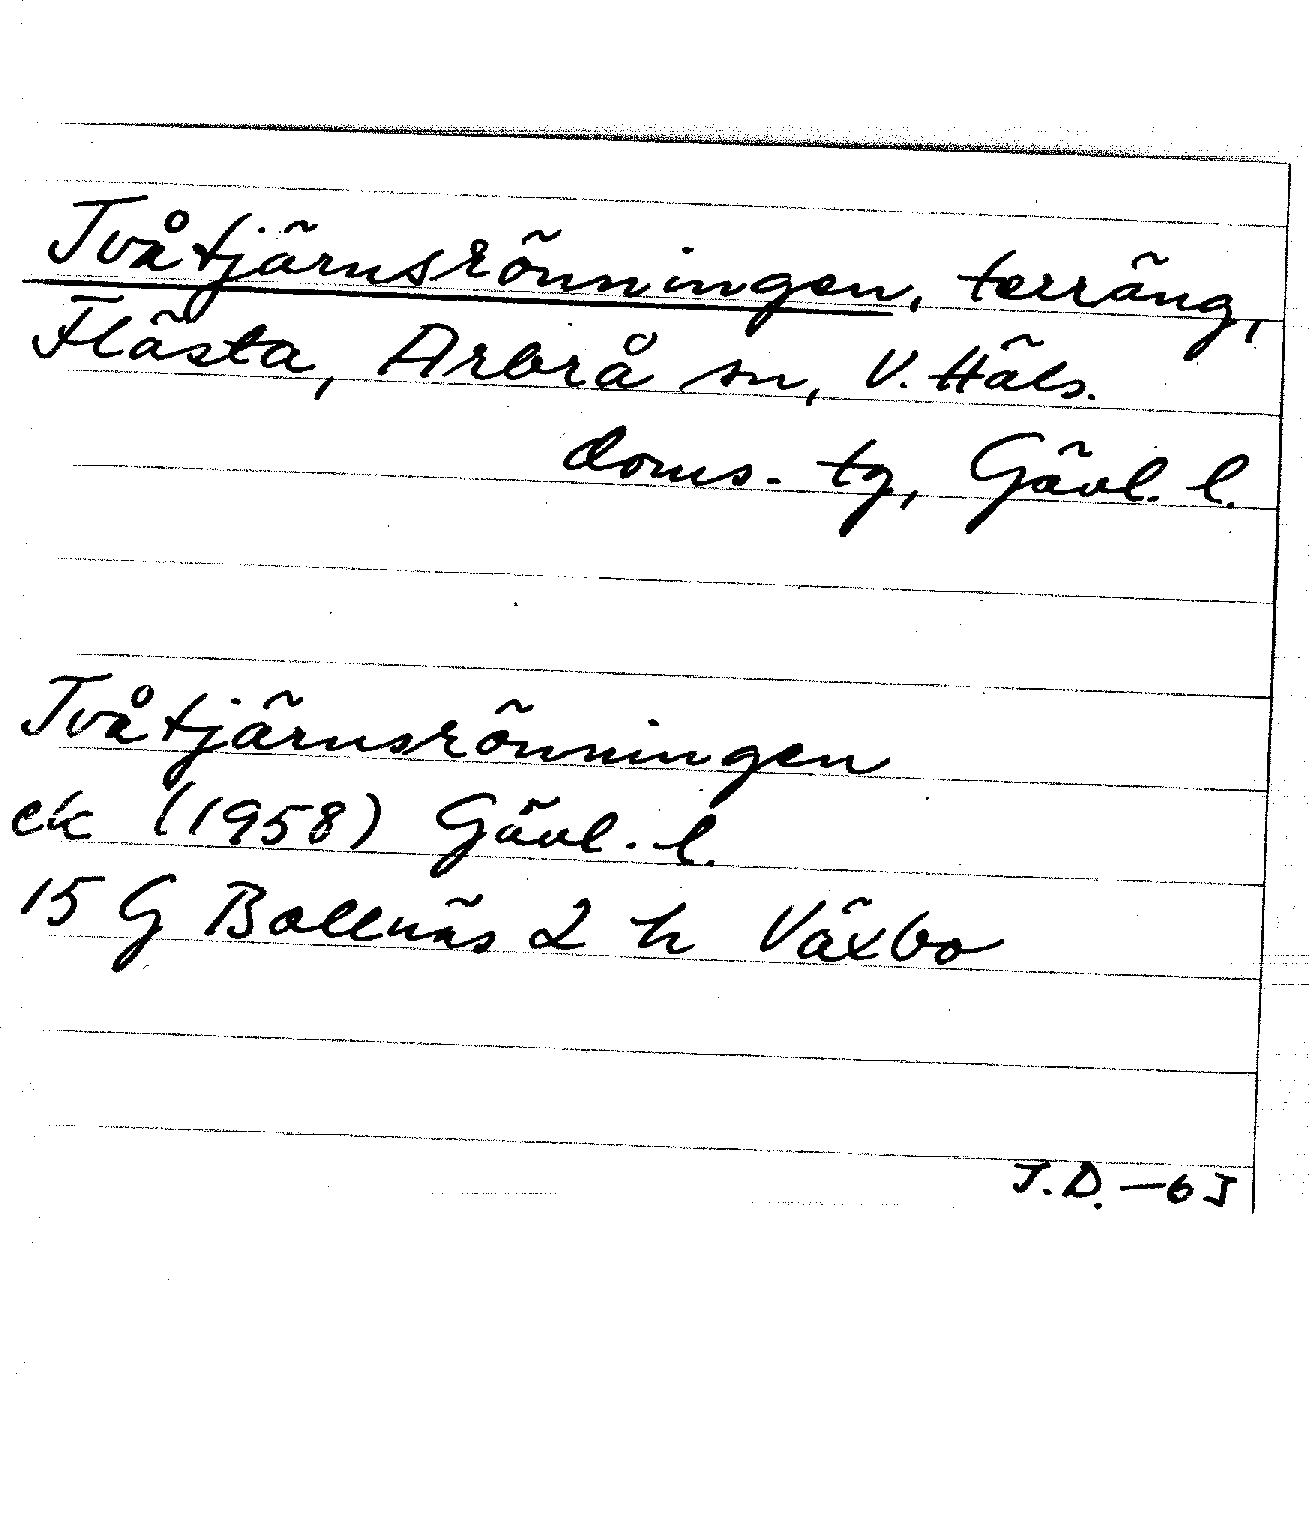 Tvåtjärnsrönningen, terräng,
Flästa, Arbrå sn, V. Häls.
doms. tg, Gävl. l.
Tvåtjärnsrönningen
ek (1958) Gävl. l.
15 G Bollnäs 2 h Växbo
J.D. —6